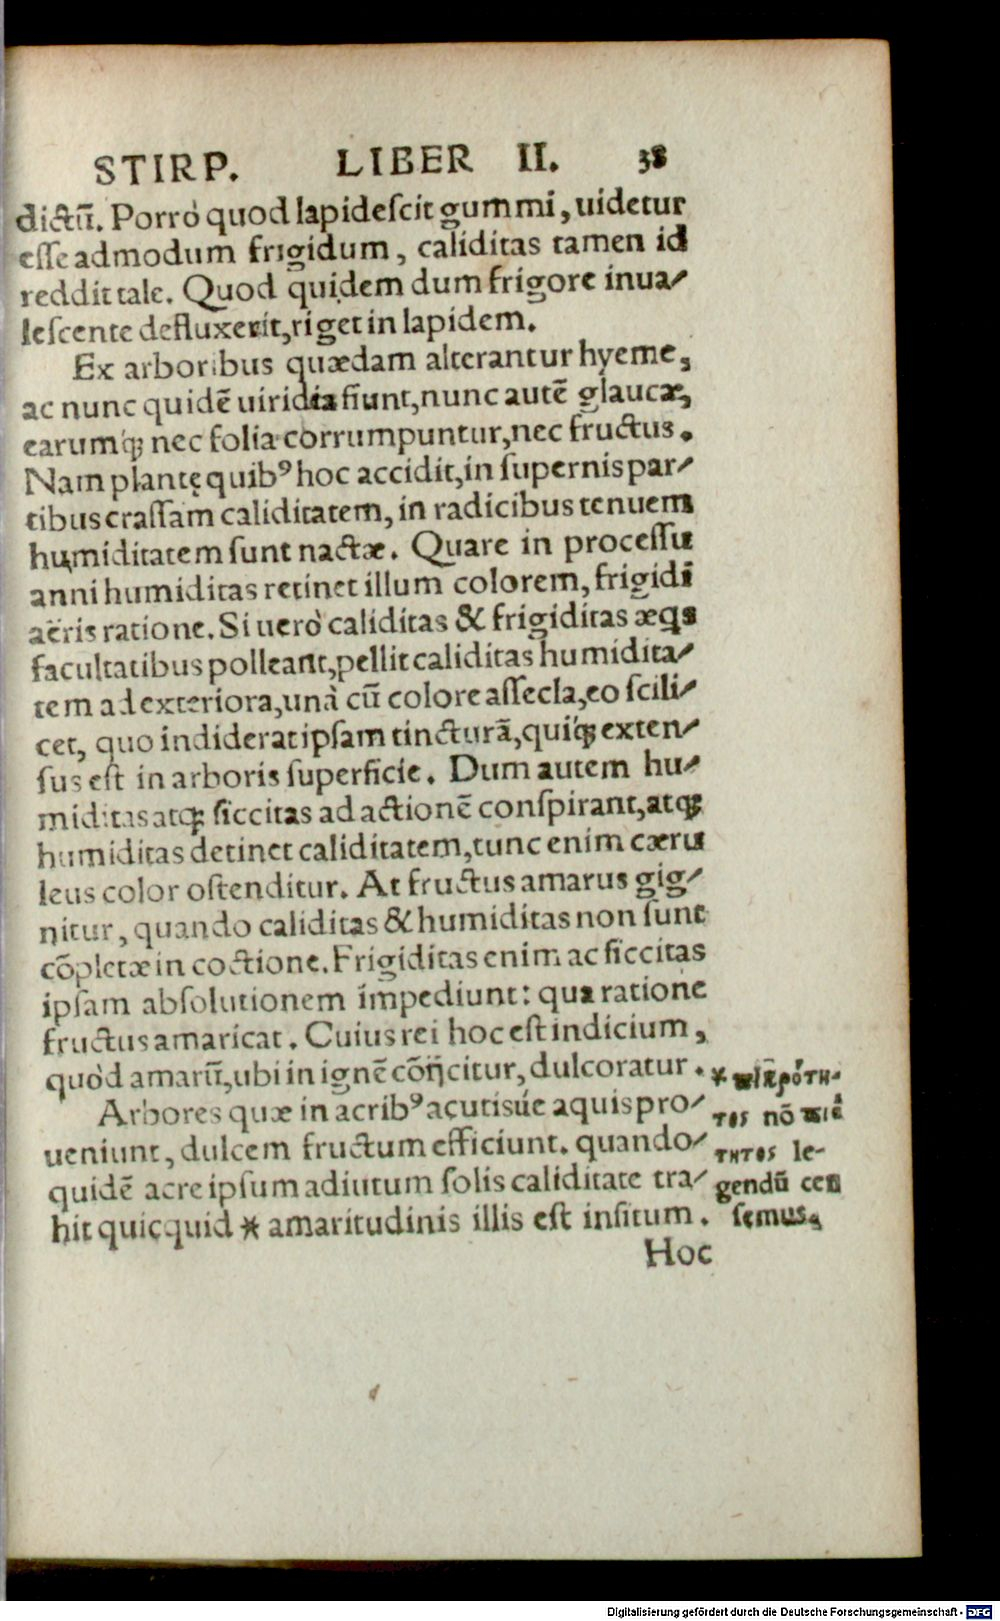 STIRP. LIBER II. 38
dictū. Porrò quod lapidescit gummi, uidetur
esse admodum frigidum, caliditas tamen id
reddit tale. Quod quidem dum frigore inua-
lescente defluxerit, riget in lapidem.
Ex arboribus quædam alterantur hyeme,
ac nunc quidē uiridia fiunt, nunc autē glaucæ,
earumq́; nec folia corrumpuntur, nec fructus.
Nam plantę quibꝰ hoc accidit, in supernis par-
tibus crassam caliditatem, in radicibus tenuem
humiditatem sunt nactæ. Quare in processu
anni humiditas retinet illum colorem, frigidi
aëris ratione. Si uerò caliditas & frigiditas æqs
facultatibus polleant, pellit caliditas humidita-
tem ad exteriora, unà cū colore assecla, eo scili-
cet, quo indiderat ipsam tincturā, quiq́; exten-
sus est in arboris superficie. Dum autem hu-
miditas atq; siccitas ad actionē conspirant, atq;
humiditas detinet caliditatem, tunc enim cæru
leus color ostenditur. At fructus amarus gig-
nitur, quando caliditas & humiditas non sunt
cōpletæ in coctione. Frigiditas enim ac siccitas
ipsam absolutionem impediunt: qua ratione
fructus amaricat. Cuius rei hoc est indicium,
quòd amarū, ubi in ignē cōijcitur, dulcoratur.
Arbores quæ in acribꝰ acutisúe aquis pro-
ueniunt, dulcem fructum efficiunt. quando-
quidē acre ipsum adiutum solis caliditate tra-
hit quicquid * amaritudinis illis est insitum.
* πικρότη-
τος nō πιε
τητος le-
gendū cen
semus.
Hoc
Digitalisierung gefördert durch die Deutsche Forschungsgemeinschaft - DFG